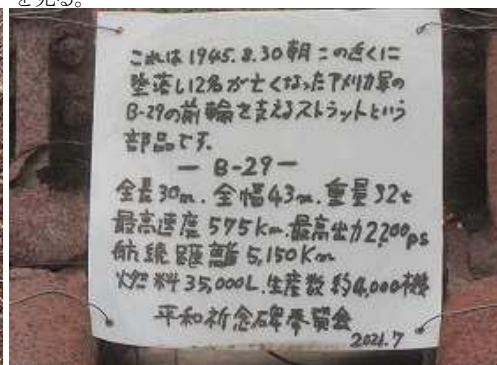 を見る。
これは1945.8.30朝この近くに
墜落し12名が亡くなったアメリカ軍の
B-29の前輪を支えるストラットという
部品です。
— B-29 —
全長30m.全幅43m.重量32t
最高速度575Km.最高出力2,200ps
航続距離5,150Km
燃料35,000L.生産数約4,000機
平和祈念碑委員会
2021.7